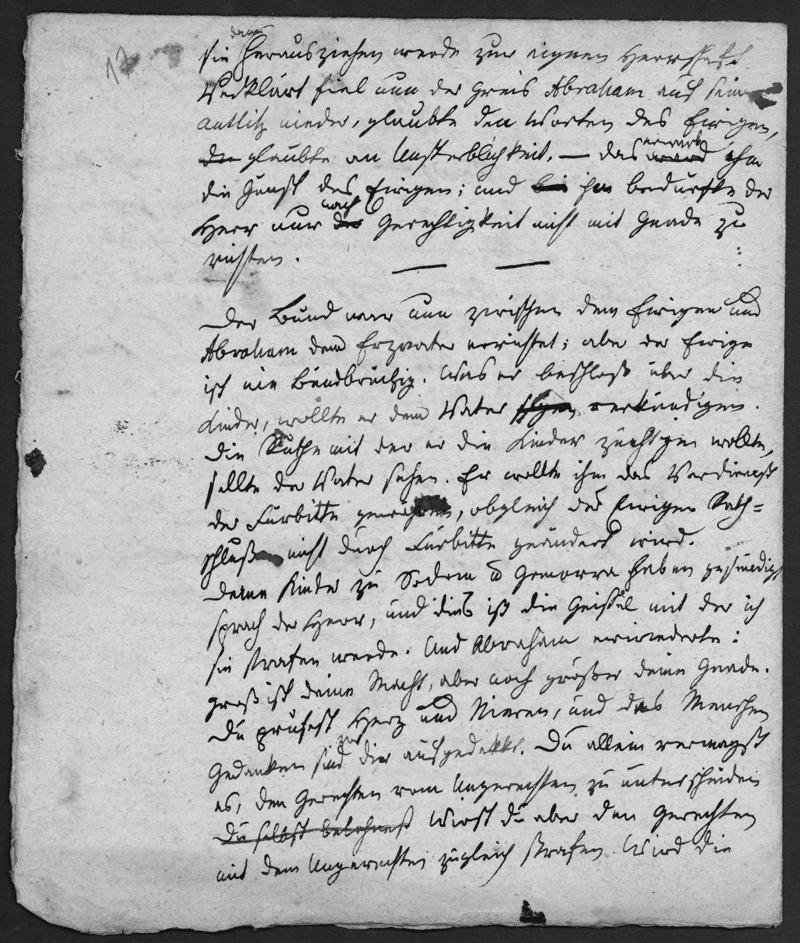 17
dann
sie herausziehen werde zur eignen Herrschaft.
Verklärt fiel nun der Greis Abraham auf sein
Antlitz nieder, glaubte den Worten des Ewigen,
die glaubte an Unsterblichkeit. — das ward erwarb ihm
die Gunst des Ewigen; und bei ihm bedurfte der
Herr nur der nach Gerechtigkeit nicht mit Gnade zu
richten.
— —
Der Bund war nun zwischen dem Ewigen und
Abraham dem Erzvater errichtet; aber der Ewige
ist nie bundbrüchig. Was er beschloß über die
Kinder, wollte er dem Vater verkündigen.
Die Ruthe mit der er die Kinder züchtigen wollte,
sollte der Vater sehen. Er wollte ihm das Verdienst
der Fürbitte, obgleich des Ewigen Rath-
schluß nicht durch Fürbitte geändert wird.
Deine Kinder zu Sodom u Gomorra haben gesündigt
sprach der Herr, und dies ist die Geißel mit der ich
sie strafen werde. Und Abraham erwiederte:
groß ist deine Macht, aber noch größer deine Gnade.
Du prüfest Herz und Nieren, und des Menschen
Gedanken sind dir aufgedekkt. Du allein vermagst
es, den Gerechten vom Ungerechten zu unterscheiden
Du selbst belohnest Wirst du aber den Gerechten
mit dem Ungerechten zugleich strafen. Wird die